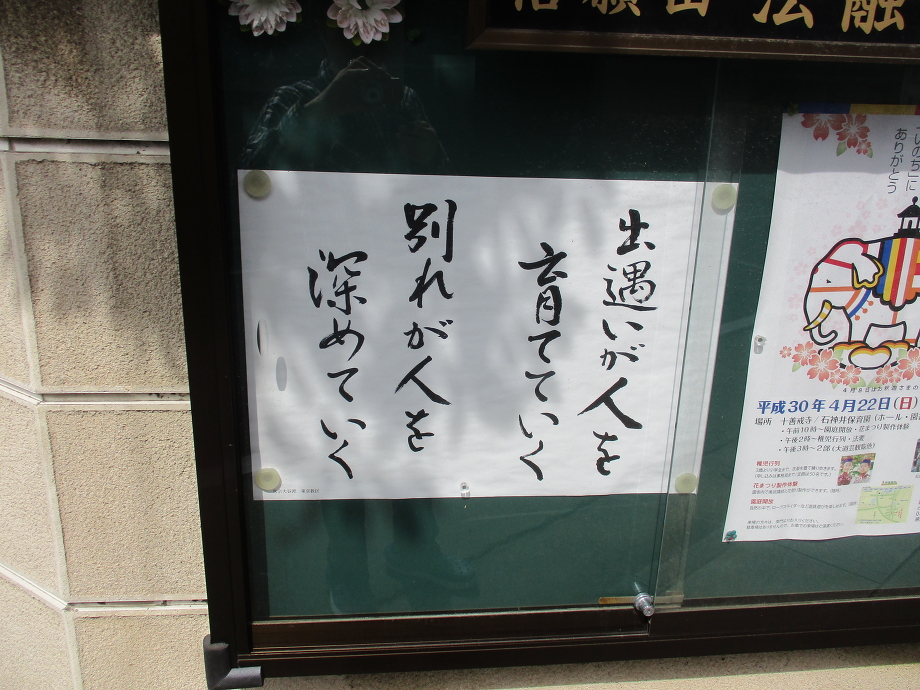 融法山願
出遇いが人を
育てていく
別れが人を
深めていく
真宗大谷派 東京教区
いのちに
ありがとう
平成30年4月22日(日)
場所 十善戒寺/石神井保育園(ホール・園
・午前10時～園庭開放・花まつり製作体験
・午後2時～稚児行列・法要
・午後3時～2部(大道芸観覧他)
稚児行列
花まつり製作体験
園庭開放